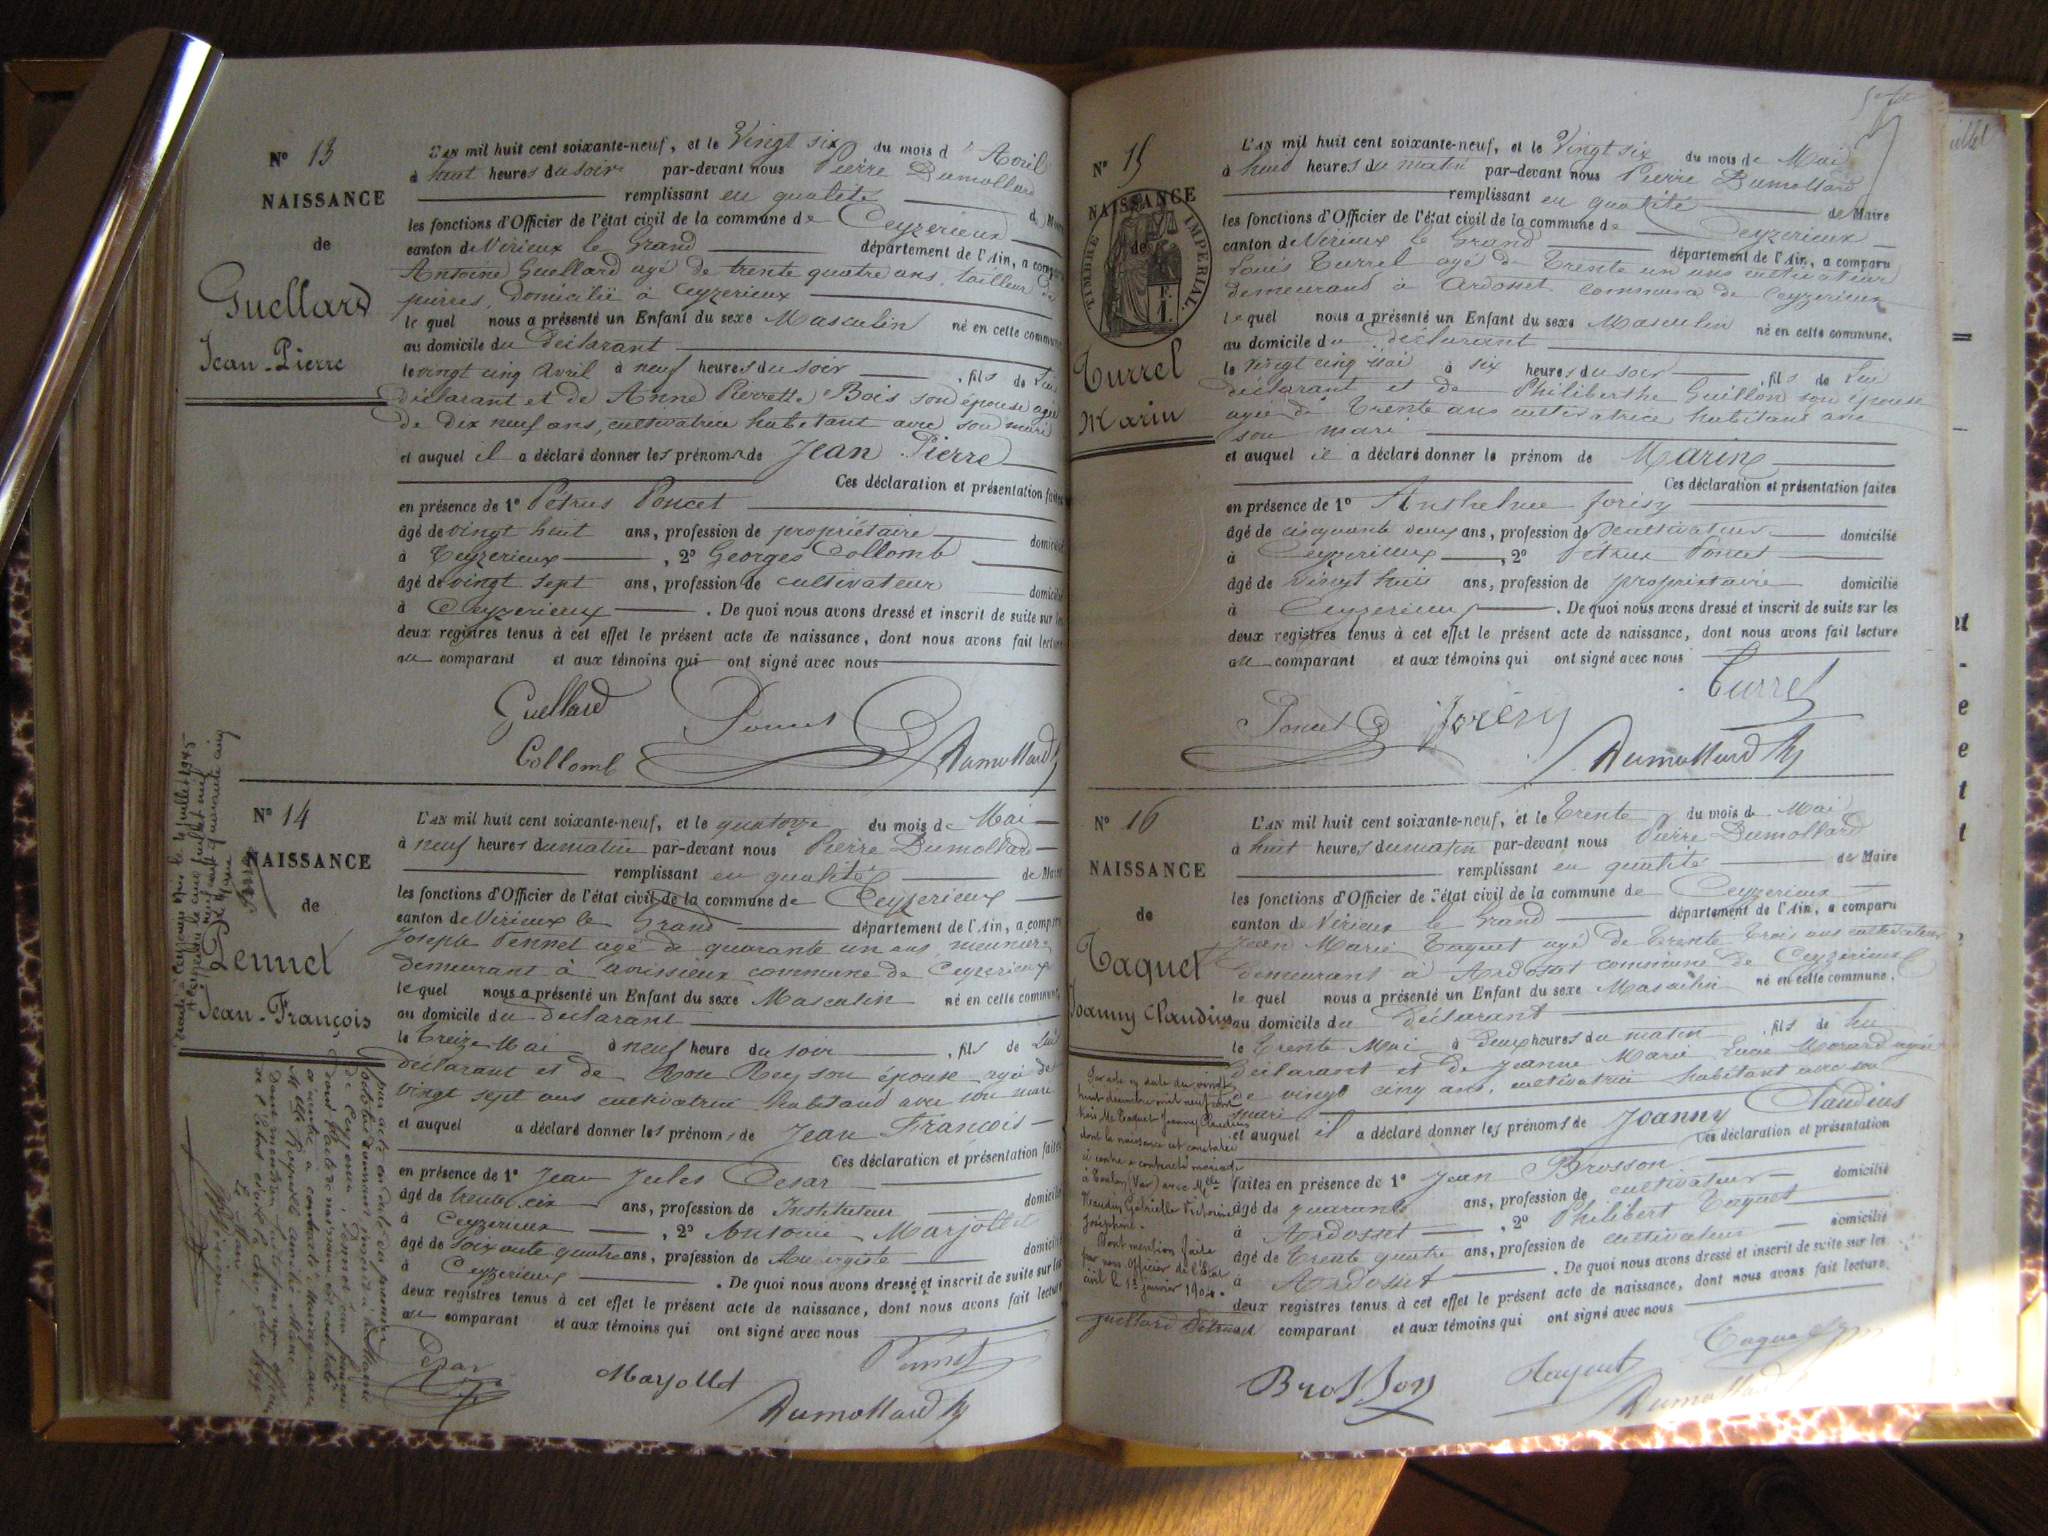 N° 13
NAISSANCE
de
Guellard
Jean-Pierre
L'AN mil huit cent soixante-neuf, et le Vingt six du mois d'Avril
à huit heures du soir par-devant nous Pierre Dumollard
remplissant en qualité de
les fonctions d'Officier de l'état civil de la commune de Ceyzerieux
canton de Virieux le Grand département de l'Ain, a comparu
Antoine Guellard agé de trente quatre ans, tailleur de
pierres, domicilié à Ceyzerieux
le quel nous a présenté un Enfant du sexe Masculin né en cette commune
au domicile du déclarant
le vingt cinq Avril à neuf heures du soir, fils de Lui
déclarant et de Anne Pierrette Bois son épouse agée
de Dix neuf ans, cultivatrice habitant avec son mari
et auquel il a déclaré donner les prénoms de Jean Pierre
Ces déclaration et présentation faites
en présence de 1° Pétrus Poncet
âgé de vingt huit ans, profession de propriétaire domicilié
à Ceyzerieux, 2° Georges Collomb
âgé de vingt sept ans, profession de cultivateur domicilié
à Ceyzerieux. De quoi nous avons dressé et inscrit de suite sur les
deux registres tenus à cet effet le présent acte de naissance, dont nous avons fait lecture
au comparant et aux témoins qui ont signé avec nous
Guellard Poncet
Collomb Dumollard
N° 14
NAISSANCE
de
Pennet
Jean-François
L'AN mil huit cent soixante-neuf, et le quatorze du mois de Mai
à neuf heures du matin par-devant nous Pierre Dumollard
remplissant en qualité de Maire
les fonctions d'Officier de l'état civil de la commune de Ceyzerieux
canton de Virieux le Grand département de l'Ain, a comparu
Joseph Pennet agé de quarante un ans, meunier
demeurant à avissieux commune de Ceyzerieux
le quel nous a présenté un Enfant du sexe Masculin né en cette commune
au domicile du déclarant
le Treize Mai à neuf heure du soir, fils de Lui
déclarant et de Rose Rey son épouse agée de
vingt sept ans cultivatrice habitant avec son mari
et auquel a déclaré donner les prénoms de Jean François
Ces déclaration et présentation faites
en présence de 1° Jean Jules Désar
âgé de trente six ans, profession de Instituteur domicilié
à Ceyzerieux, 2° Antoine Marjollet
âgé de soixante quatre ans, profession de Aubergiste domicilié
à Ceyzerieux. De quoi nous avons dressé et inscrit de suite sur les
deux registres tenus à cet effet le présent acte de naissance, dont nous avons fait lecture
au comparant et aux témoins qui ont signé avec nous
Désar Marjollet Pennet
Dumollard
N° 15
NAISSANCE
de
TIMBRE IMPERIAL
Turrel
Marin
L'AN mil huit cent soixante-neuf, et le Vingt six du mois de Mai
à huit heures du matin par-devant nous Pierre Dumollard
remplissant en qualité de Maire
les fonctions d'Officier de l'état civil de la commune de Ceyzerieux
canton de Virieux le Grand département de l'Ain, a comparu
Louis Turrel agé de Trente un ans cultivateur
demeurant à Ardosset commune de Ceyzerieux
le quel nous a présenté un Enfant du sexe Masculin né en cette commune.
au domicile du déclarant
le vingt cinq Mai à six heures du soir, fils de Lui
déclarant et de Philiberthe Guillon son épouse
agée de Trente ans cultivatrice habitant avec
son mari
et auquel il a déclaré donner le prénom de Marin
Ces déclaration et présentation faites
en présence de 1° Anthelme Jorisy
âgé de cinquante deux ans, profession de cultivateur domicilié
à Ceyzerieux, 2° Pétrus Poncet
âgé de vingt huit ans, profession de propriétaire domicilié
à Ceyzerieux. De quoi nous avons dressé et inscrit de suite sur les
deux registres tenus à cet effet le présent acte de naissance, dont nous avons fait lecture
au comparant et aux témoins qui ont signé avec nous
Turrel
Poncet
Dumollard
N° 16
NAISSANCE
de
Taquet
Joanny Claudius
L'AN mil huit cent soixante-neuf, et le Trente du mois de Mai
à huit heures du matin par-devant nous Pierre Dumollard
remplissant en qualité de Maire
les fonctions d'Officier de l'état civil de la commune de Ceyzerieux
canton de Virieux le Grand département de l'Ain, a comparu
Jean Marie Taquet agé de Trente Trois ans cultivateur
demeurant à Ardosset commune de Ceyzerieux
le quel nous a présenté un Enfant du sexe Masculin né en cette commune.
au domicile du déclarant
le Trente Mai à deux heures du matin, fils de lui
déclarant et de Jeanne Marie Morard agée
de vingt cinq ans, cultivatrice habitant avec son
mari
et auquel il a déclaré donner les prénoms de Joanny Claudius
Ces déclaration et présentation
faites en présence de 1° Jean Brosson
âgé de quarante ans, profession de cultivateur domicilié
à Ardosset, 2° Philibert Taquet
âgé de Trente quatre ans, profession de cultivateur domicilié
à Ardosset. De quoi nous avons dressé et inscrit de suite sur les
deux registres tenus à cet effet le présent acte de naissance, dont nous avons fait lecture
comparant et aux témoins qui ont signé avec nous
Brosson Taquet
Dumollard
Par acte en date du vingt
huit décembre mil neuf cent
trois Mr Taquet Joanny Claudius
dont la naissance est constatée
ci contre a contracté mariage
à Toulon (Var) avec Melle
Gabrielle Victorine
Joséphine.
Dont mention faite
par nous Officier de l'Etat
civil le 1er janvier 1904.